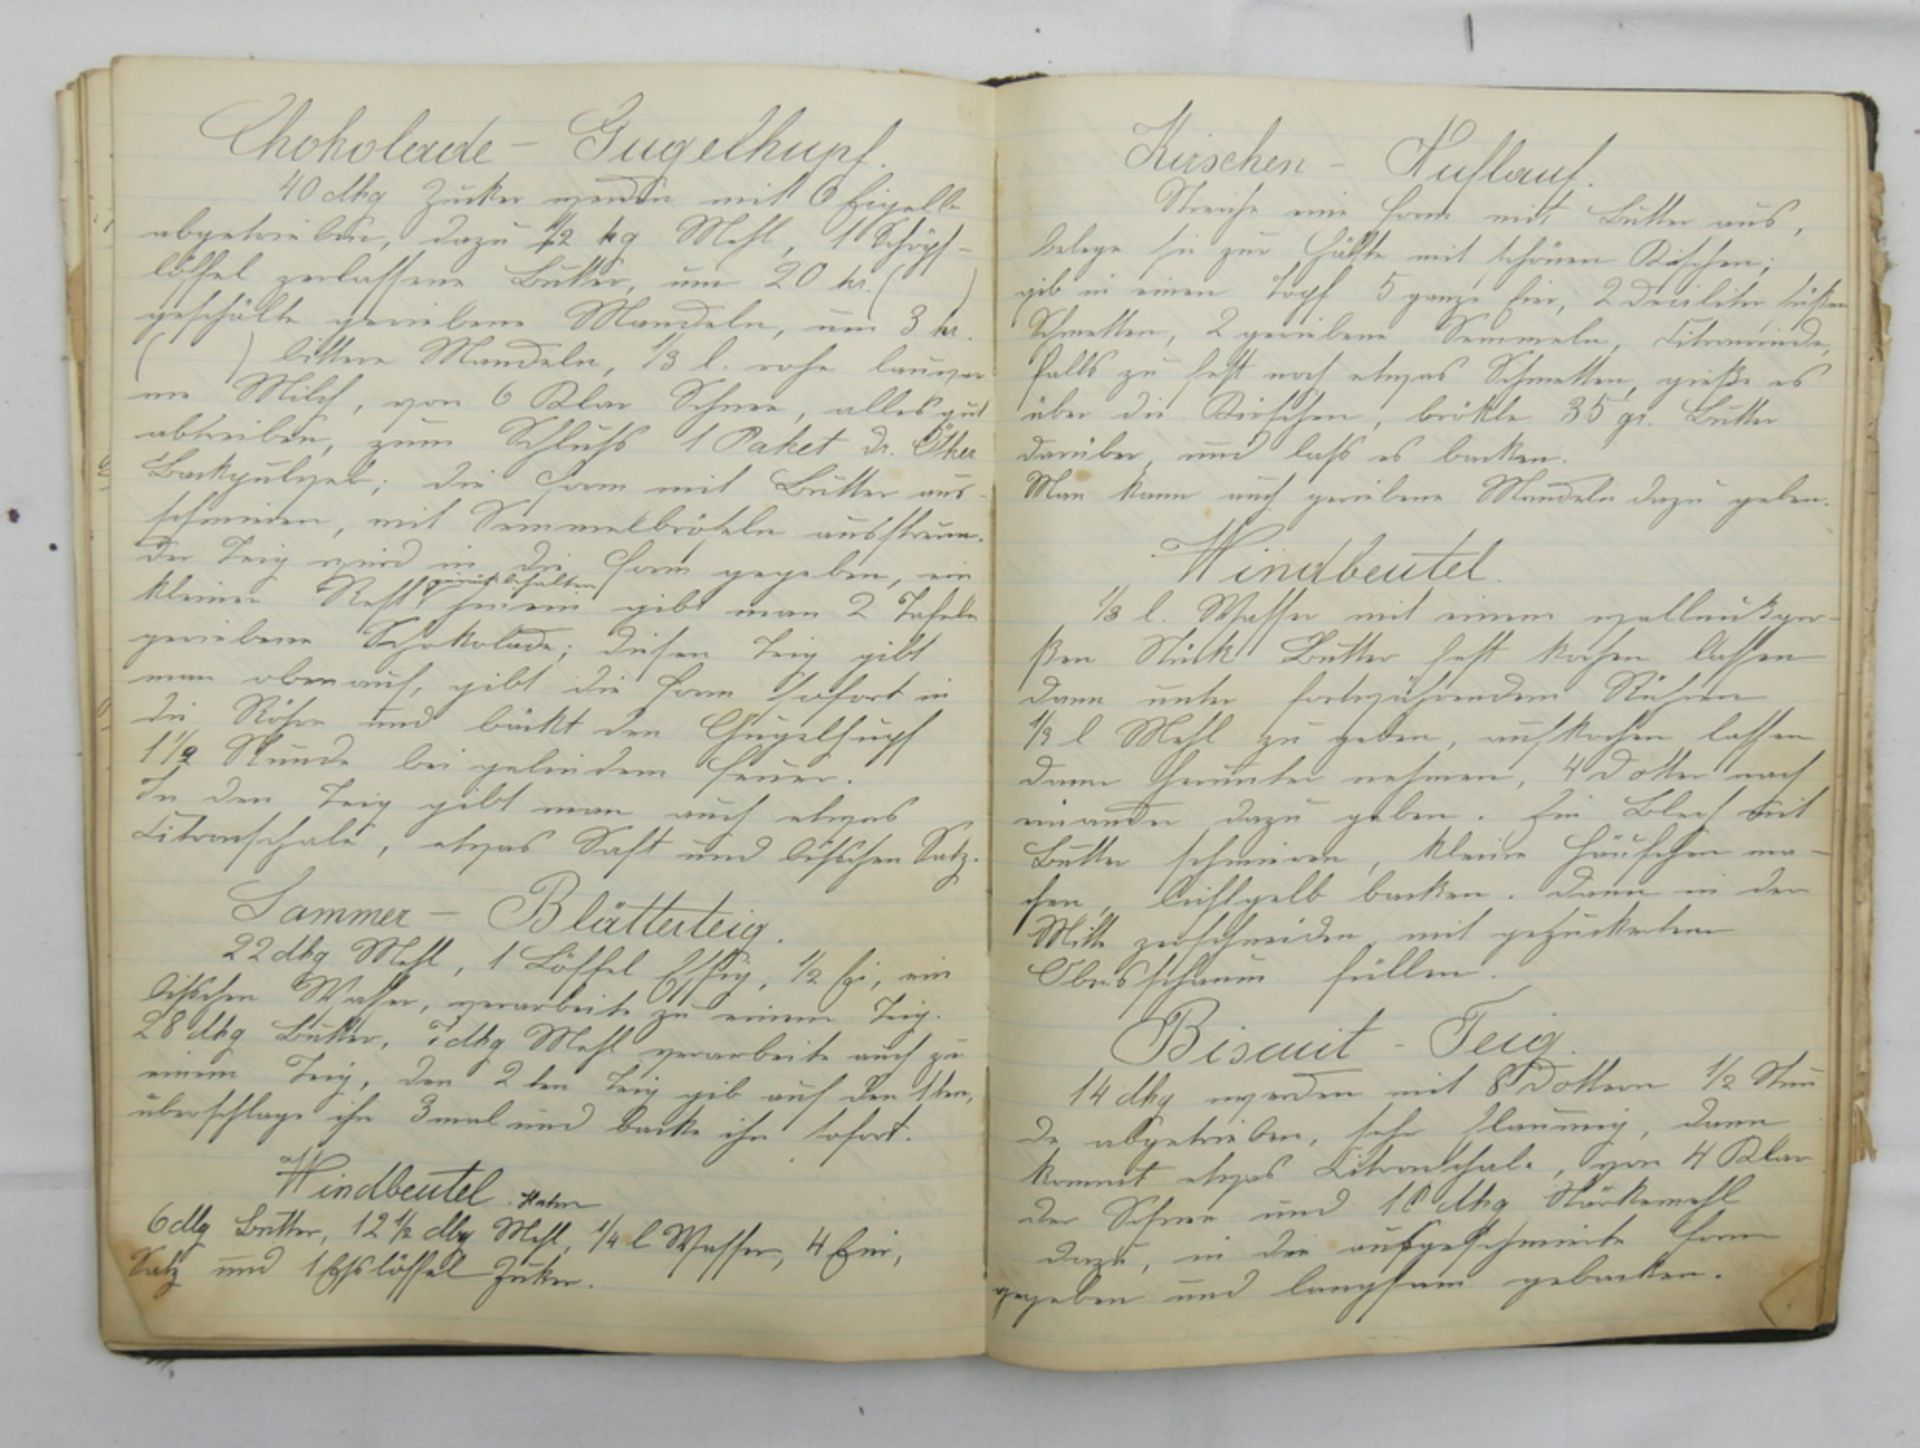 Chokolade – Gugelhupf.
40 dkg Zucker werden mit 6 Eigelb
abgetrieben, dazu 1/2 kg Mehl, 1 Schöpf-
löffel zerlassene Butter, um 20 kr. (      )
geschälte geriebene Mandeln, um 3 kr.
(      ) bittere Mandeln, 1/8 l. rohe lauwar
me Milch, von 6 Klar Schnee, alles gut
abtreiben, zum Schluß 1 Paket Dr. Ötker
Backpulver; die Form mit Butter aus-
schmieren, mit Semmelbröseln ausstreuen.
Der Teig wird in die Form gegeben, ein
kleiner Rest zurückbehalten hinein gibt man 2 Tafeln
geriebene Schokolade; diesen Teig gibt
man obenauf, gibt die Form sofort in
die Röhre und bäckt den Gugelhupf
1 1/2 Stunde bei gelindem Feuer.
In den Teig gibt man auch etwas
Citronschale, etwas Saft und bißchen Salz.
Sammer – Blätterteig.
22 dkg Mehl, 1 Löffel Essig, 1/2 Ei, ein
bißchen Wasser, verarbeite zu einem Teig.
28 dkg Butter, 7 dkg Mehl verarbeite auch zu
einem Teig, den 2ten Teig gib auf den 1ten,
überschlage ihn 3mal und backe ihn sofort.
Windbeutel.
6 dkg Butter, 12 1/2 dkg Mehl, 1/4 l Wasser, 4 Eier,
Salz und 1 Eßlöffel Zucker.
Kirschen – Auflauf.
Streiche eine Form mit Butter aus,
belege sie zur Hälfte mit schönen Kirschen;
gib in einen Topf 5 ganze Eier, 2 Deciliter süßen
Schmetten, 2 geriebene Semmeln, Citronrinde,
falls zu fest noch etwas Schmetten, gieße es
über die Kirschen, brökle 35 gr. Butter
darüber und laß es backen.
Man kann auch geriebene Mandeln dazu geben.
Windbeutel.
1/8 l. Wasser mit einem wallnußgro-
ßen Stück Butter fest kochen lassen
dann unter fortwährendem Rühren
1/8 l Mehl zu geben, aufkochen lassen
dann herunter nehmen, 4 Dotter nach
einander dazu geben. Ein Blech mit
Butter schmieren, kleine Häufchen ma-
chen, lichtgelb backen. Dann in der
Mitte zerschneiden, mit gezuckertem
Obersschaum füllen.
Biscuit – Teig.
14 dkg werden mit 8 Dottern 1/2 Stun
de abgetrieben, sehr flaumig, dann
kommt etwas Citronschale, von 4 Klar
der Schnee und 10 dkg Stärkemehl
dazu, in die ausgeschmierte Form
gegeben und langsam gebacken.